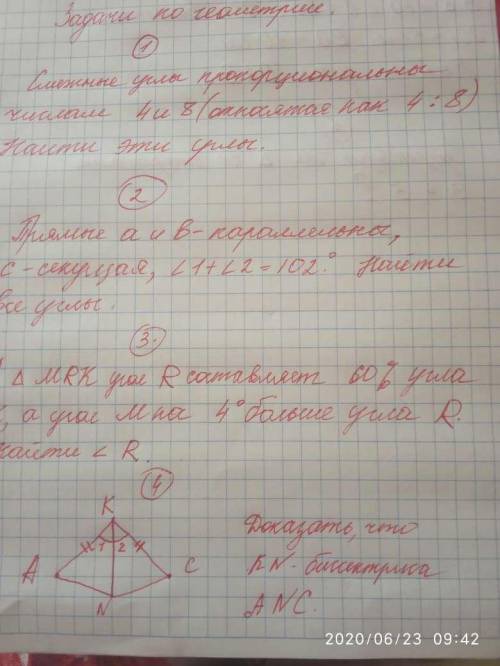 Задачи по геометрии.
1
Смежные углы пропорциональны
числам 4 и 8 (относятся как 4 : 8)
Найти эти углы.
2
Прямые a и b - параллельны,
c - секущая, ∠1 + ∠2 = 102°. Найти
все углы.
3.
Δ MRK угол R составляет 60% угла
, а угол M на 4° больше угла R.
Найти ∠ R.
4
K
1 2
A C
N
Доказать, что
KN - биссектриса
ANC.
2020/06/23 09:42